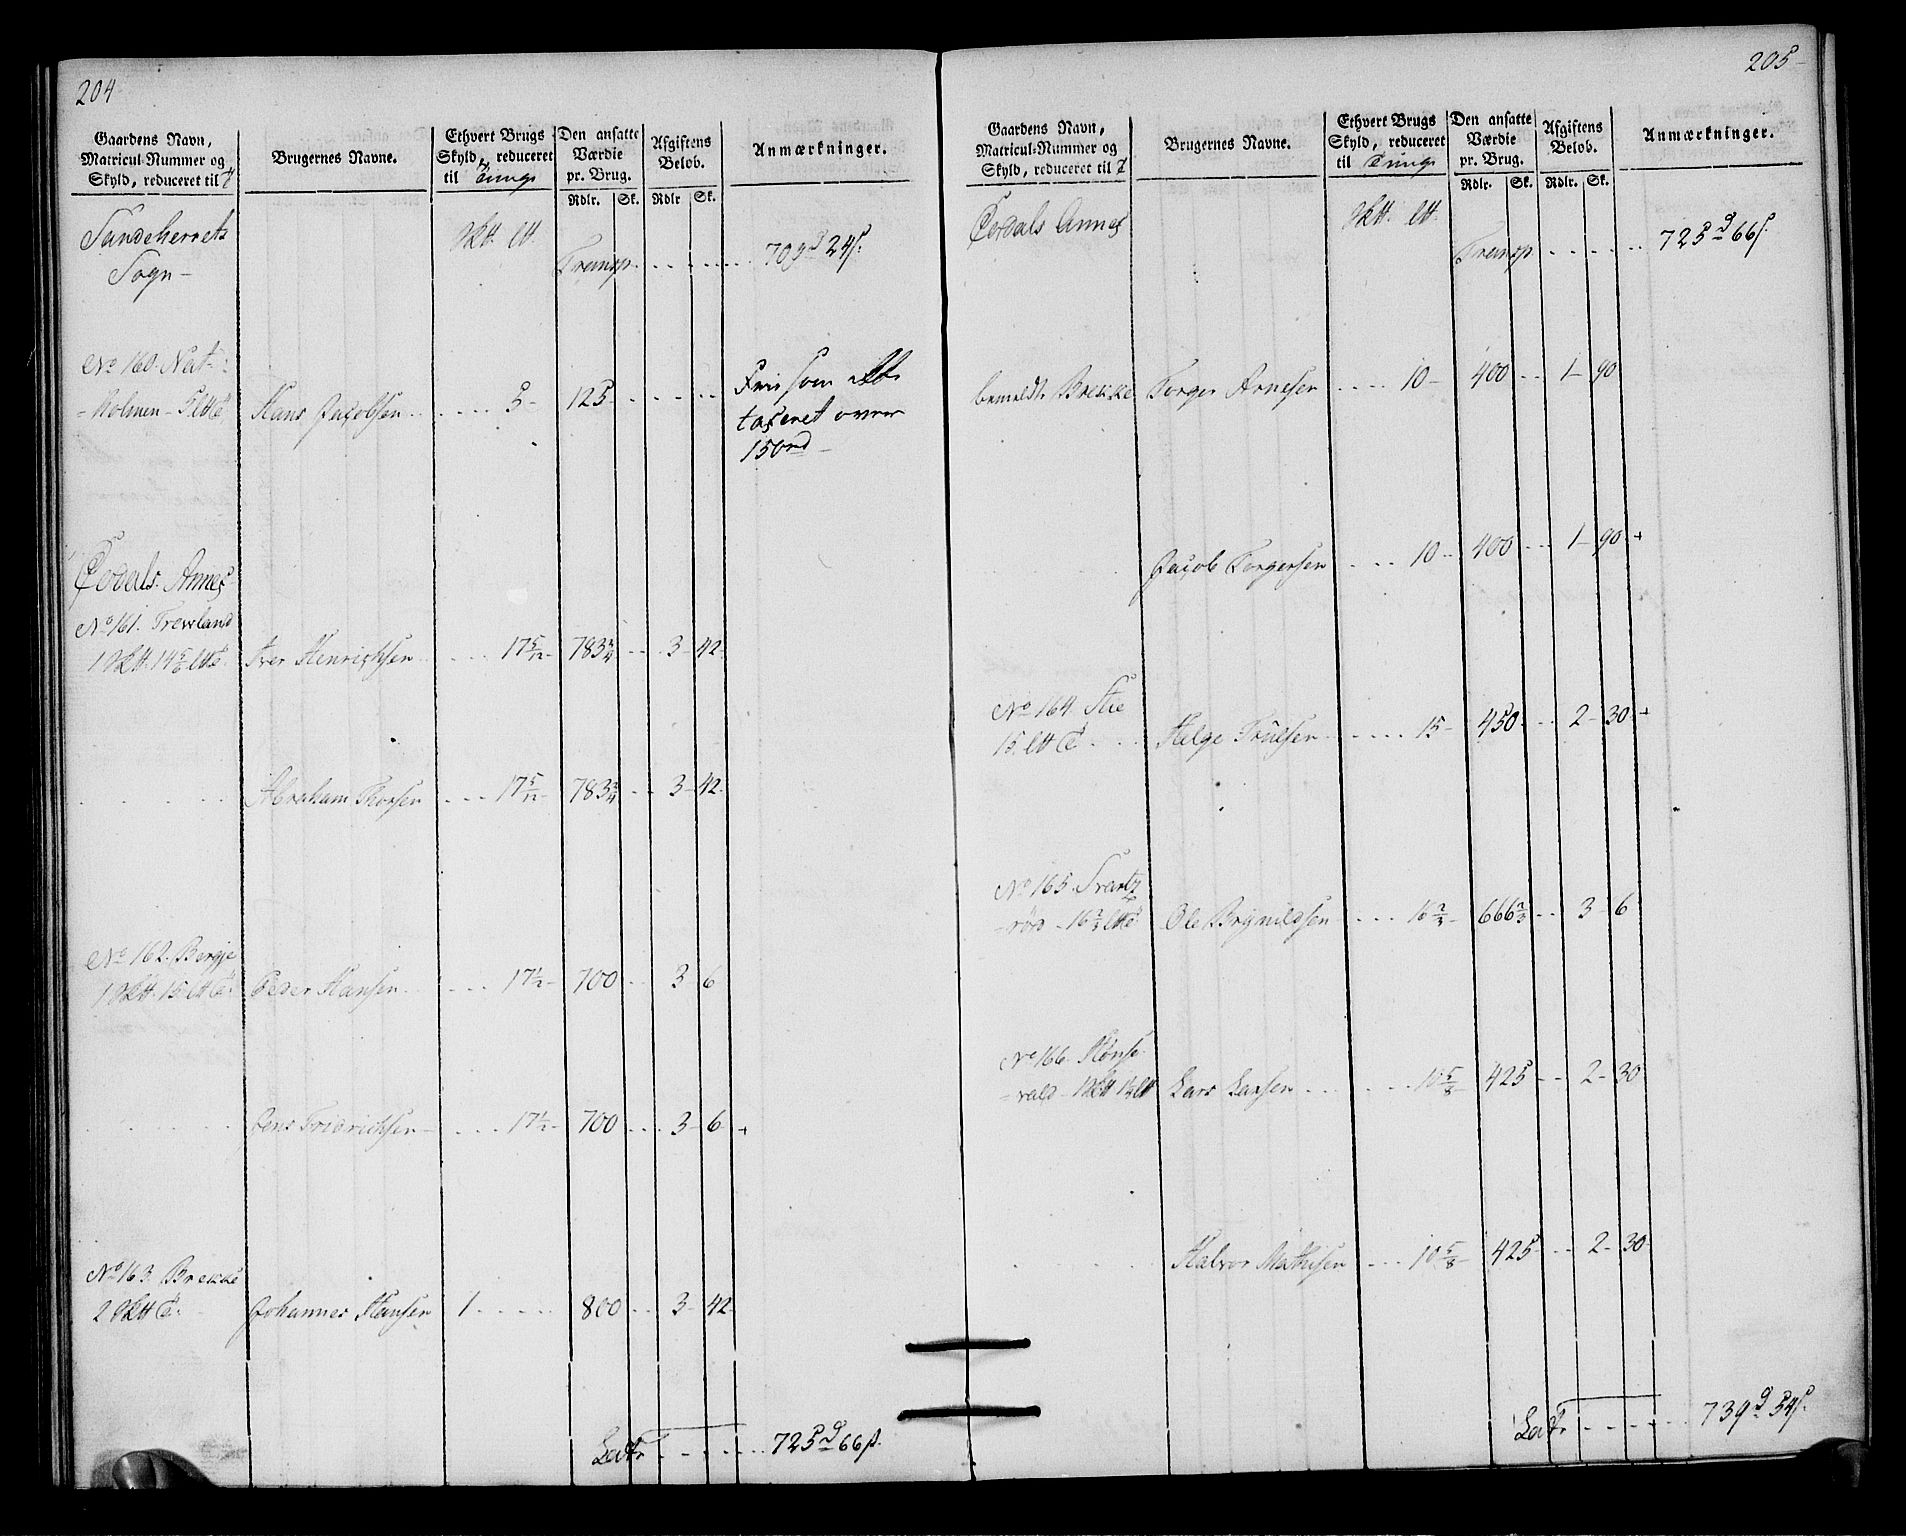 204
Gaardens Navn, Matricul-Nummer og Skyld, reduceret til
Brugernes Navne.
Ethvert Brugs Skyld, reduceret til Tunge
Den ansatte Værdie pr. Brug.
Afgiftens Beløb.
Anmærkninger.
Rdlr. Sk. Rdlr Sk.
Sandeherrets Sogn
Sktt. ltt.
Transp. 709 24
No 160. Nat-
holmen 5 ltt Hans Jacobsen 5 125
Fri som ikke
taxeret over
150 rd
Oserdals Annex
No 161. Treveland
1 Sktt. 14 5/6 ltt Iver Henrichsen 17 5/12 783 3/4 3 42
Abraham Thorsen 17 5/12 783 3/4 3 42
No 162. Bergje
1 Sktt. 15 ltt Peder Hansen 17 1/2 700 3 6
Jens Fridrichsen 17 1/2 700 3 6 +
No 163. Brekke
2 Sktt Johannes Hansen 1 800 3 42
Latr 725 66
205
Gaardens Navn, Matricul-Nummer og Skyld, reduceret til
Brugernes Navne.
Ethvert Brugs Skyld, reduceret til Tunge
Den ansatte Værdie pr. Brug.
Afgiftens Beløb.
Anmærkninger.
Rdlr. Sk. Rdlr. Sk.
Annex
Sktt. ltt.
Transp 725 66
bemeldte Brekke Torger Arnesen 10 400 1 90
Jacob Torgersen 10 400 1 90 +
No 164. Stie
15 ltt Helge Trulsen 15 450 2 30 +
No 165. Svartz-
röd 16 2/3 ltt Ole Brynildsen 16 2/3 666 2/3 3 6
No 166. Hønse-
vald 1 Sktt 1 1/4 ltt Lars Larsen 10 5/8 425 2 30
Halvor Mathisen 10 5/8 425 2 30
Latr 739 54